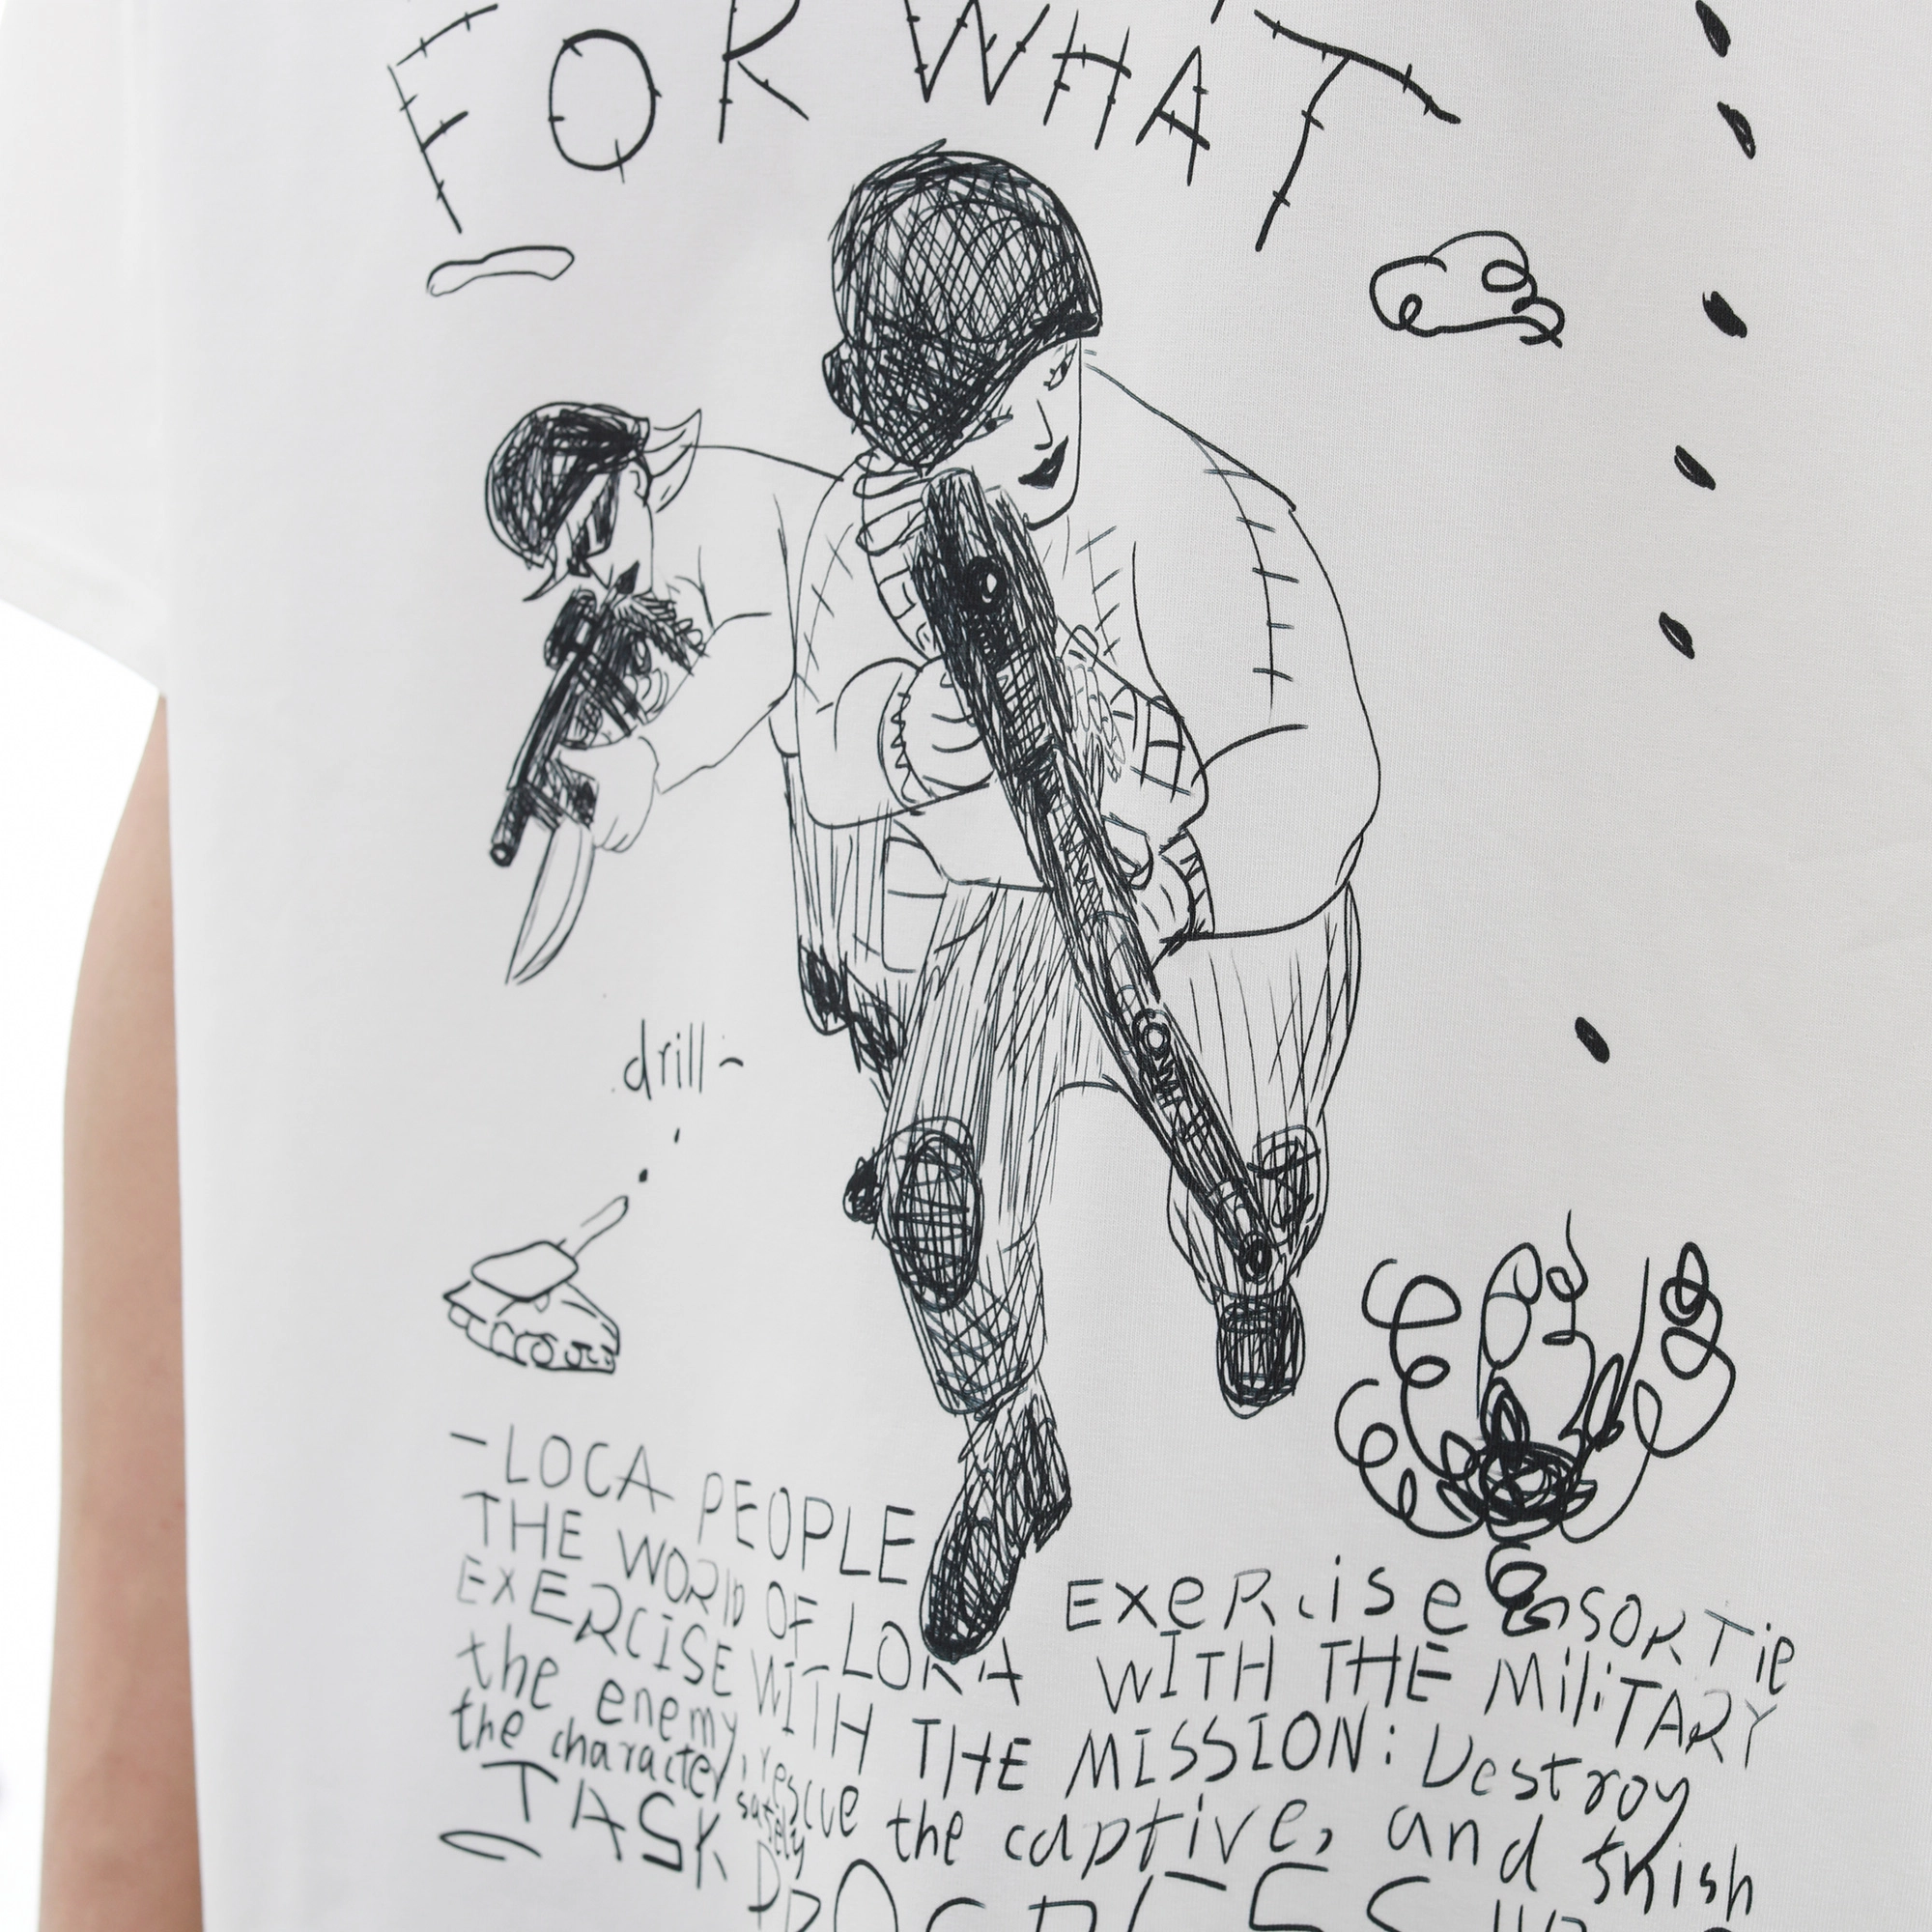 FOR WHAT
drill~
-LOCA PEOPLE EXeRcise
THE WORlD OF LOKA WITH THE MiliTARY
EXERCISE WITH THE MISSION: Destroy
the enemy, rescue the captive, and finish
the character safely
TASK